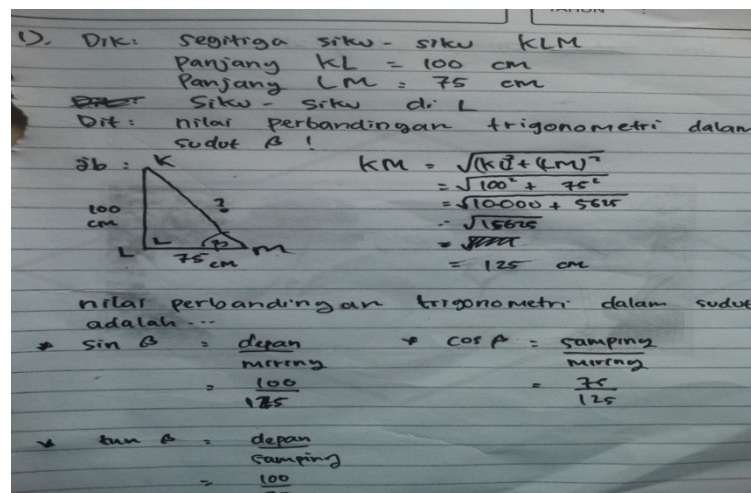 TAHUN
1). Dik : segitiga siku - siku KLM
Panjang KL = 100 cm
Panjang LM = 75 cm
Siku - siku di L
Dit : nilai perbandingan trigonometri dalam
sudut β !
Jb :
K
100
cm
?
L
L
β
M
75 cm
KM = √(KL)² + (LM)²
= √100² + 75²
= √10.000 + 5625
= √15625
= 125 cm
nilai perbandingan trigonometri dalam sudut
adalah ...
* sin β = depan
miring
= 100
125
* cos β = samping
miring
= 75
125
* tan β = depan
samping
= 100